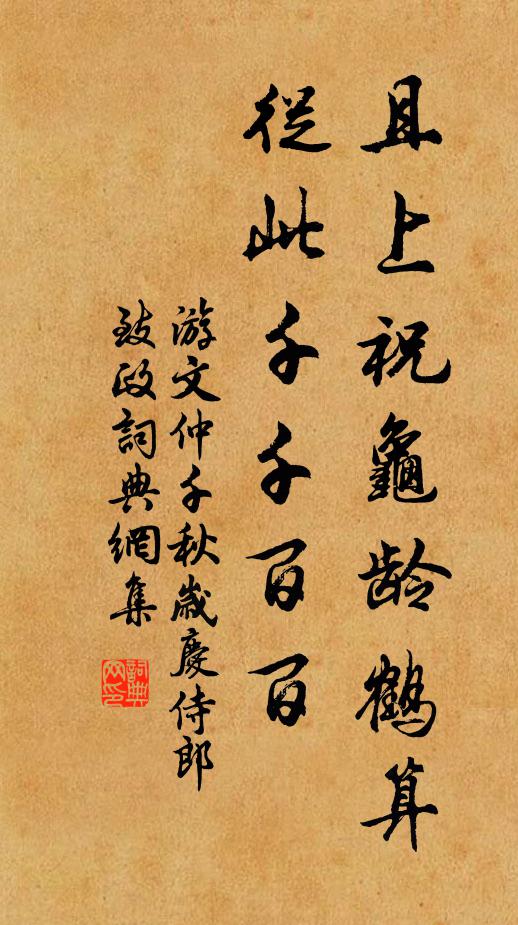 且上祝龜齡鶴算
從此千千百百
游文仲千秋歲慶侍郎
致政詞典網集
詞典
网印